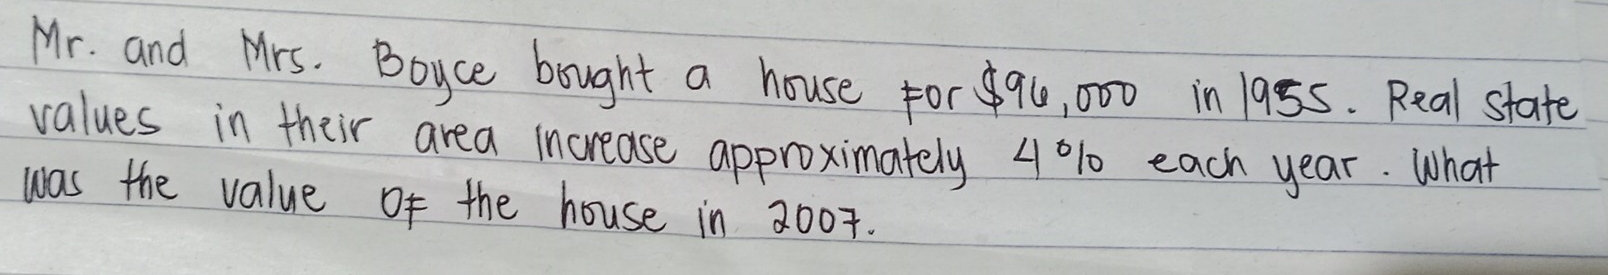 Mr. and Mrs. Boyce bought a house for $96,000 in 1955. Real state
values in their area increase approximately 4% each year. What
was the value of the house in 2007.